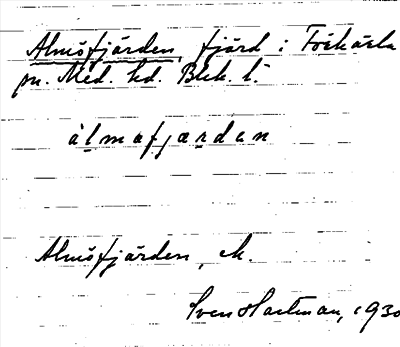 Almöfjärden, fjärd i Förkärla
sn. Med. hd. Blek. l.
àlmafjærdan
Almöfjärden, ek.
Sven Hartman, 1930